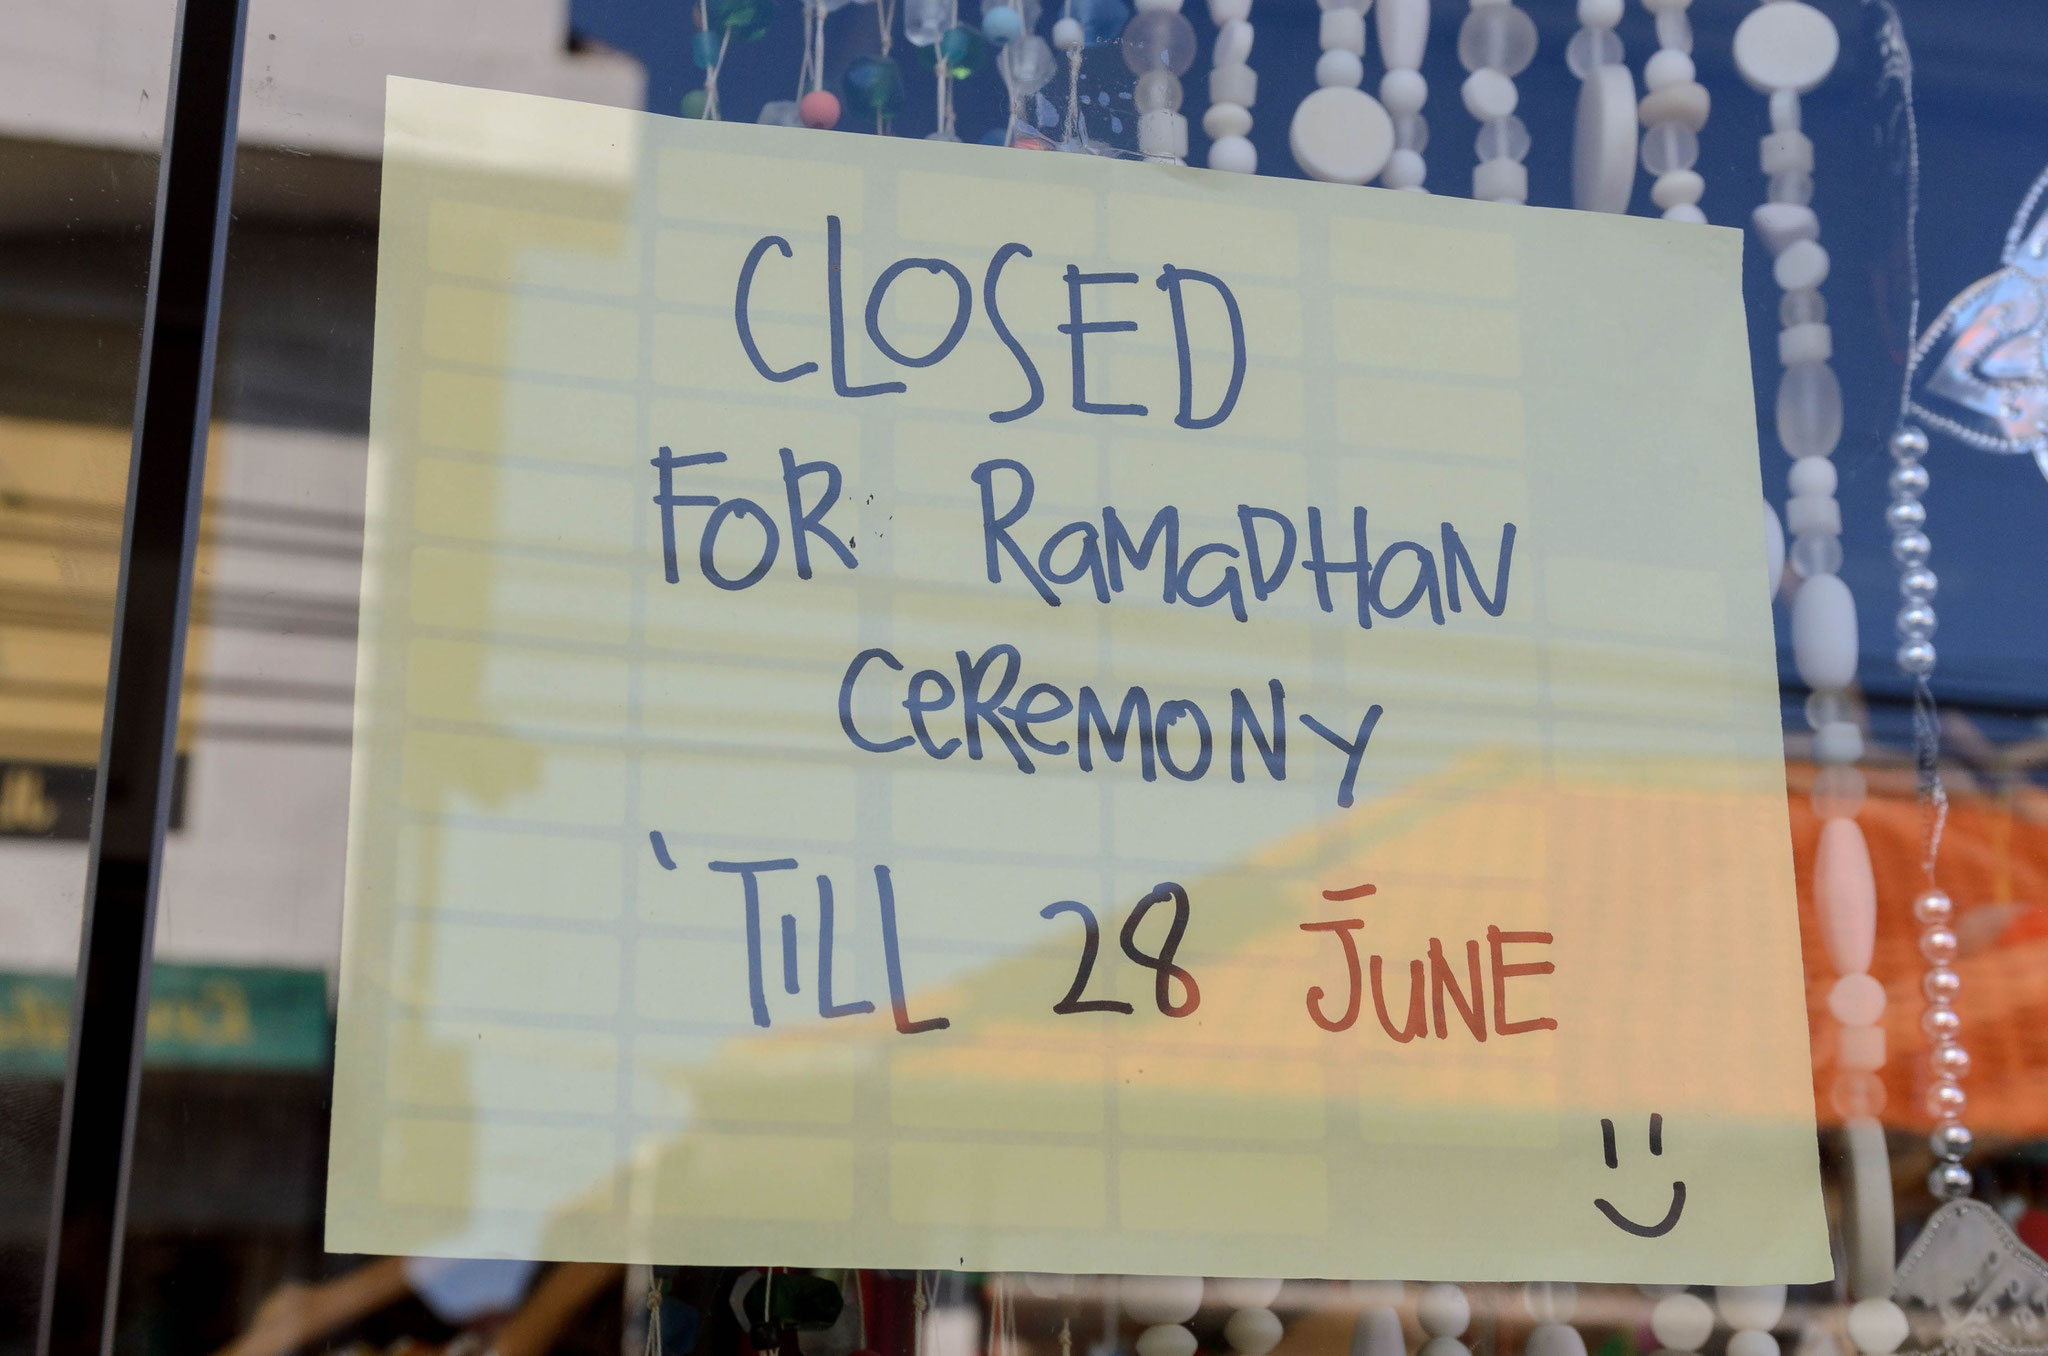 CLOSED
FOR RAMADHAN
CEREMONY
'TILL 28 JUNE